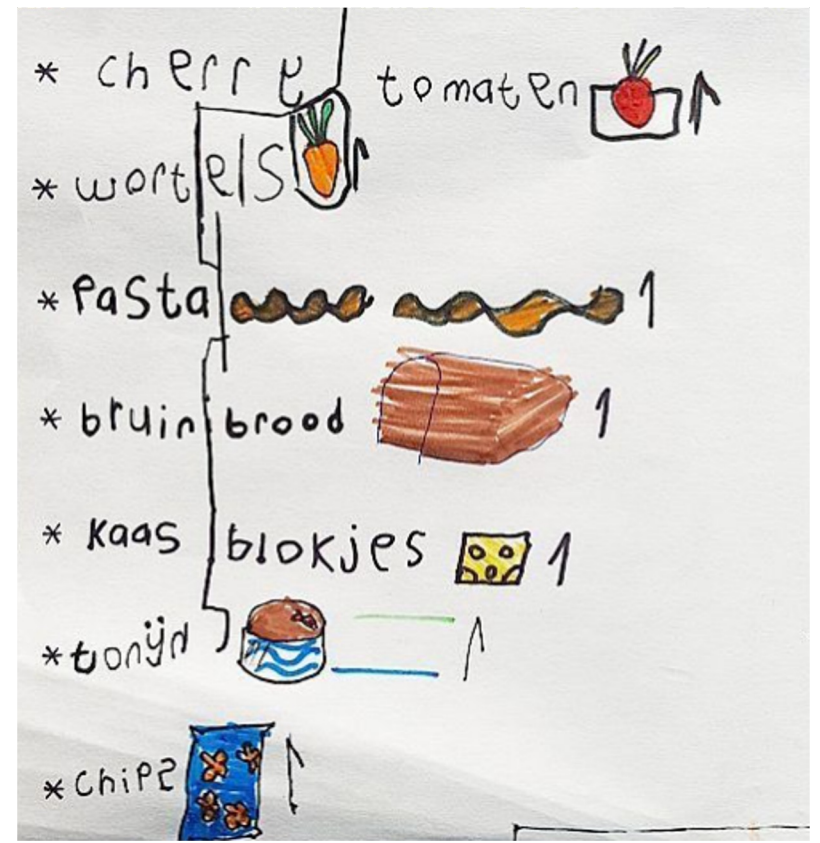 * cherry tomaten 1
* wortels 1
* Pasta 1
* bruin brood 1
* kaas blokjes 1
* tonijn 1
* chips 1